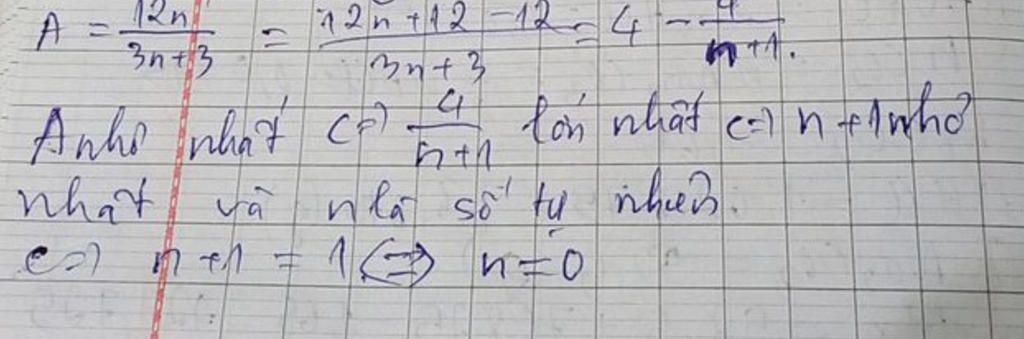 A = 12n / 3n+3 = 12n+12-12 / 3n+3 = 4 - 4 / n+1.
A nhỏ nhất <=> 4 / n+1 lớn nhất <=> n+1 nhỏ
nhất và n là số tự nhiên.
<=> n+1 = 1 <=> n=0